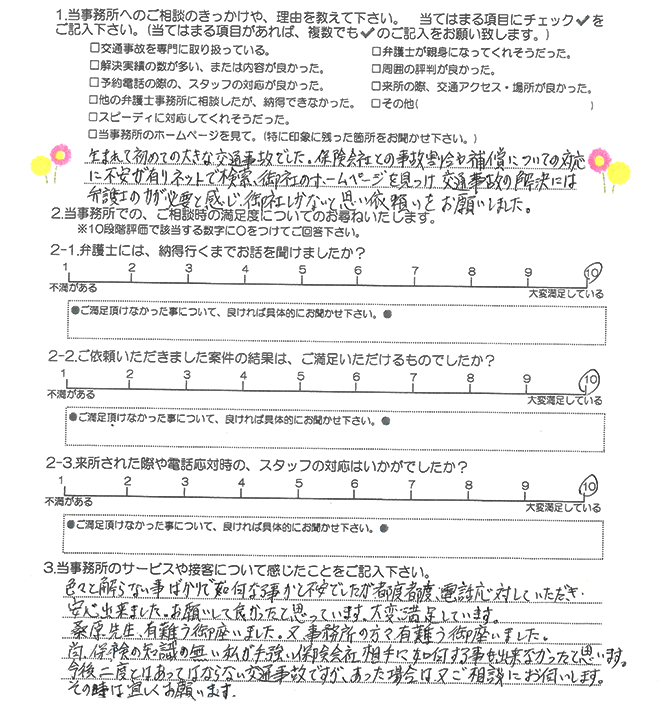 1.当事務所へのご相談のきっかけや、理由を教えて下さい。 当てはまる項目にチェック✔を
ご記入下さい。(当てはまる項目があれば、複数でも✔のご記入をお願い致します。)
□交通事故を専門に取り扱っている。 □弁護士が親身になってくれそうだった。
□解決実績の数が多い、または内容が良かった。 □周囲の評判が良かった。
□予約電話の際の、スタッフの対応が良かった。 □来所の際、交通アクセス・場所が良かった。
□他の弁護士事務所に相談したが、納得できなかった。 □その他( )
□スピーディに対応してくれそうだった。
□当事務所のホームページを見て。(特に印象に残った箇所をお聞かせ下さい。)
生まれて初めての大きな交通事故でした。保険会社との事故割合や補償についての対応
に不安が有りネットで検索、御社のホームページを見つけ交通事故の解決には
弁護士の力が必要と感じ、御社しかないと思い依頼いをお願いしました。
2.当事務所での、ご相談時の満足度についてのお尋ねいたします。
※10段階評価で該当する数字に○をつけてご回答下さい。
2-1.弁護士には、納得行くまでお話を聞けましたか?
1 2 3 4 5 6 7 8 9 10
不満がある 大変満足している
●ご満足頂けなかった事について、良ければ具体的にお聞かせ下さい。●
2-2.ご依頼いただきました案件の結果は、ご満足いただけるものでしたか?
1 2 3 4 5 6 7 8 9 10
不満がある 大変満足している
●ご満足頂けなかった事について、良ければ具体的にお聞かせ下さい。●
2-3.来所された際や電話応対時の、スタッフの対応はいかがでしたか?
1 2 3 4 5 6 7 8 9 10
不満がある 大変満足している
●ご満足頂けなかった事について、良ければ具体的にお聞かせ下さい。●
3.当事務所のサービスや接客について感じたことをご記入下さい。
色々と解らない事ばかりで如何なる事かと不安でしたが都度都度、電話応対していただき
安心出来ました。お願いして良かったと思っています。大変満足しています。
桑原先生、有難う御座いました。又、事務所の方々有難う御座いました。
尚、保険の知識の無い私が手強い保険会社相手に如何する事も出来なかったと思います。
今後二度とはあってはならない交通事故ですが、あった場合は又ご相談にお伺いします。
その時は宜しくお願います.